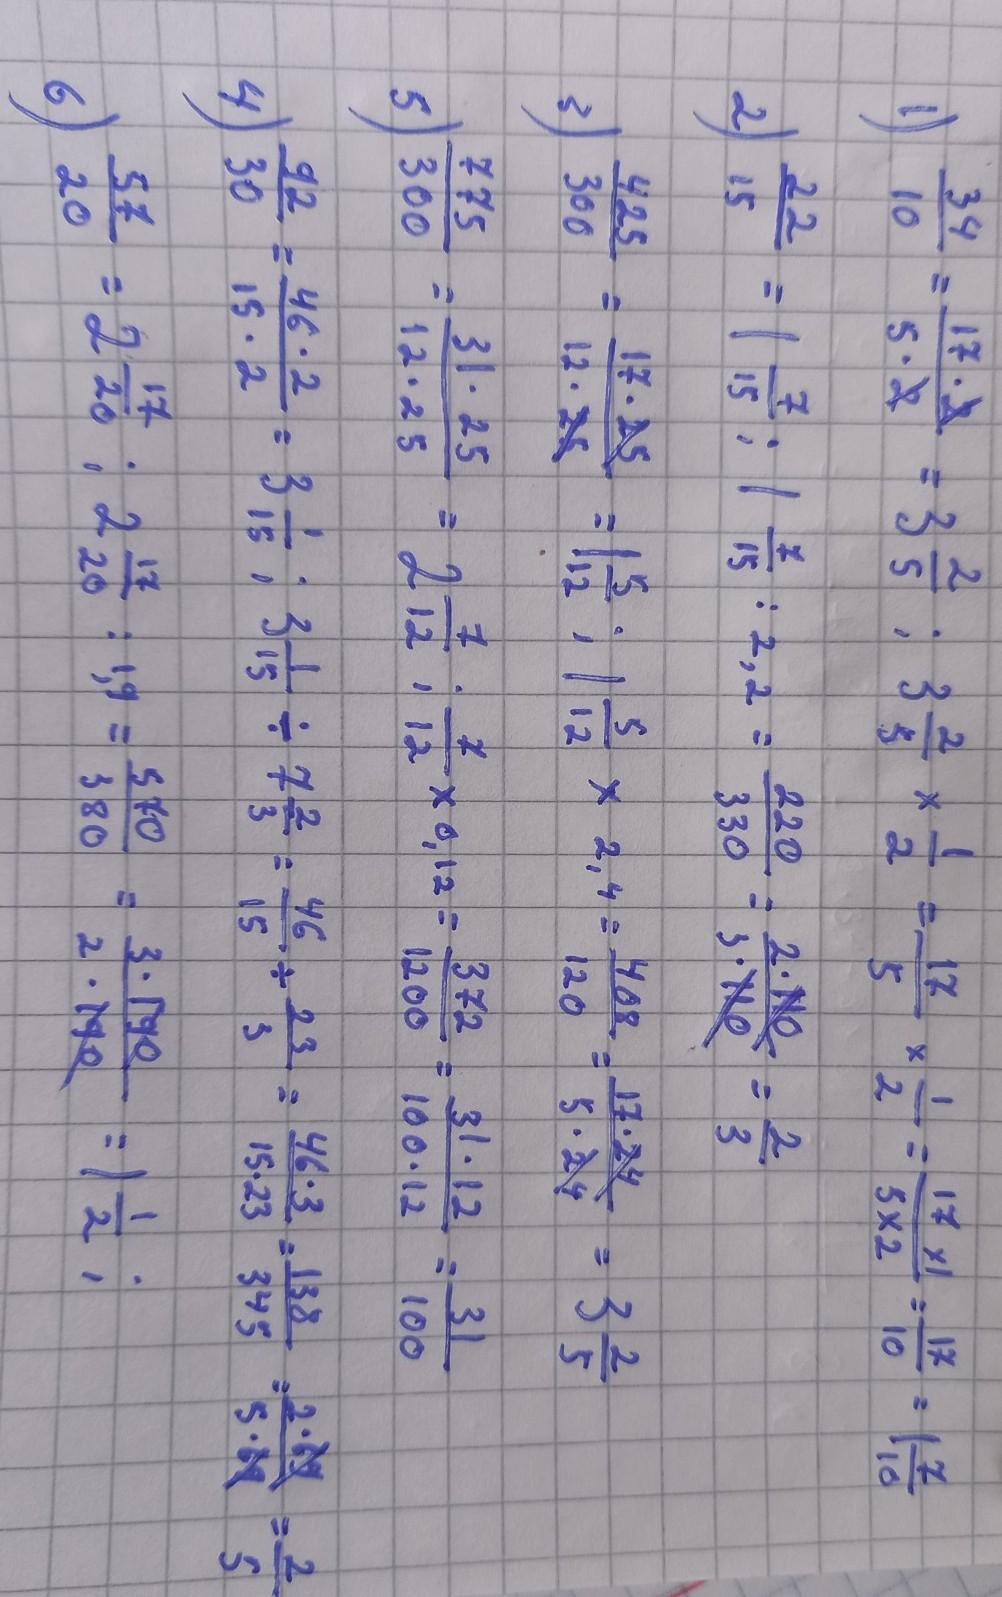 1) 34/10 = 17·2/5·2 = 3 2/5 ; 3 2/5 × 1/2 = 17/5 × 1/2 = 17×1/5×2 = 17/10 = 1 7/10
2) 22/15 = 1 7/15 ; 1 7/15 : 2,2 = 220/330 = 2·110/3·110 = 2/3
3) 425/300 = 17·25/12·25 = 1 5/12 ; 1 5/12 × 2,4 = 408/120 = 17·24/5·24 = 3 2/5
5) 775/300 = 31·25/12·25 = 2 7/12 ; 7/12 × 0,12 = 372/1200 = 31·12/100·12 = 31/100
4) 92/30 = 46·2/15·2 = 3 1/15 ; 3 1/15 ÷ 7 2/3 = 46/15 ÷ 23/3 = 46·3/15·23 = 138/345 = 2·69/5·69 = 2/5
6) 57/20 = 2 17/20 ; 2 17/20 : 1,9 = 570/380 = 3·190/2·190 = 1 1/2 ;